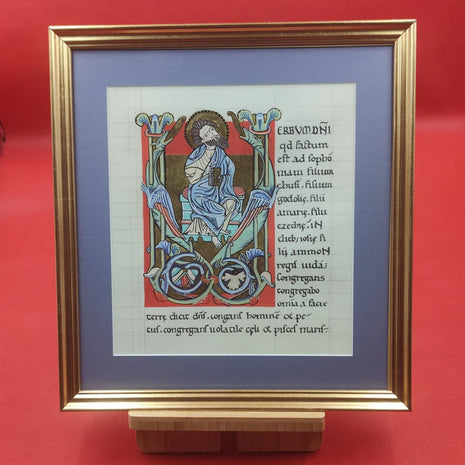 ERBVM DÑI
qd factum
est ad sopho
niam filium
chusi. filium
godolię. filii
amarię. filii
ezechię. IN
dieb; iosię fi
lii ammoN
regis iudą;
Congregans
congregabo
omnia a facie
terre dicit dñs. congans hominē & pe
cus. congregans uolacile cęli & pisces maris:~